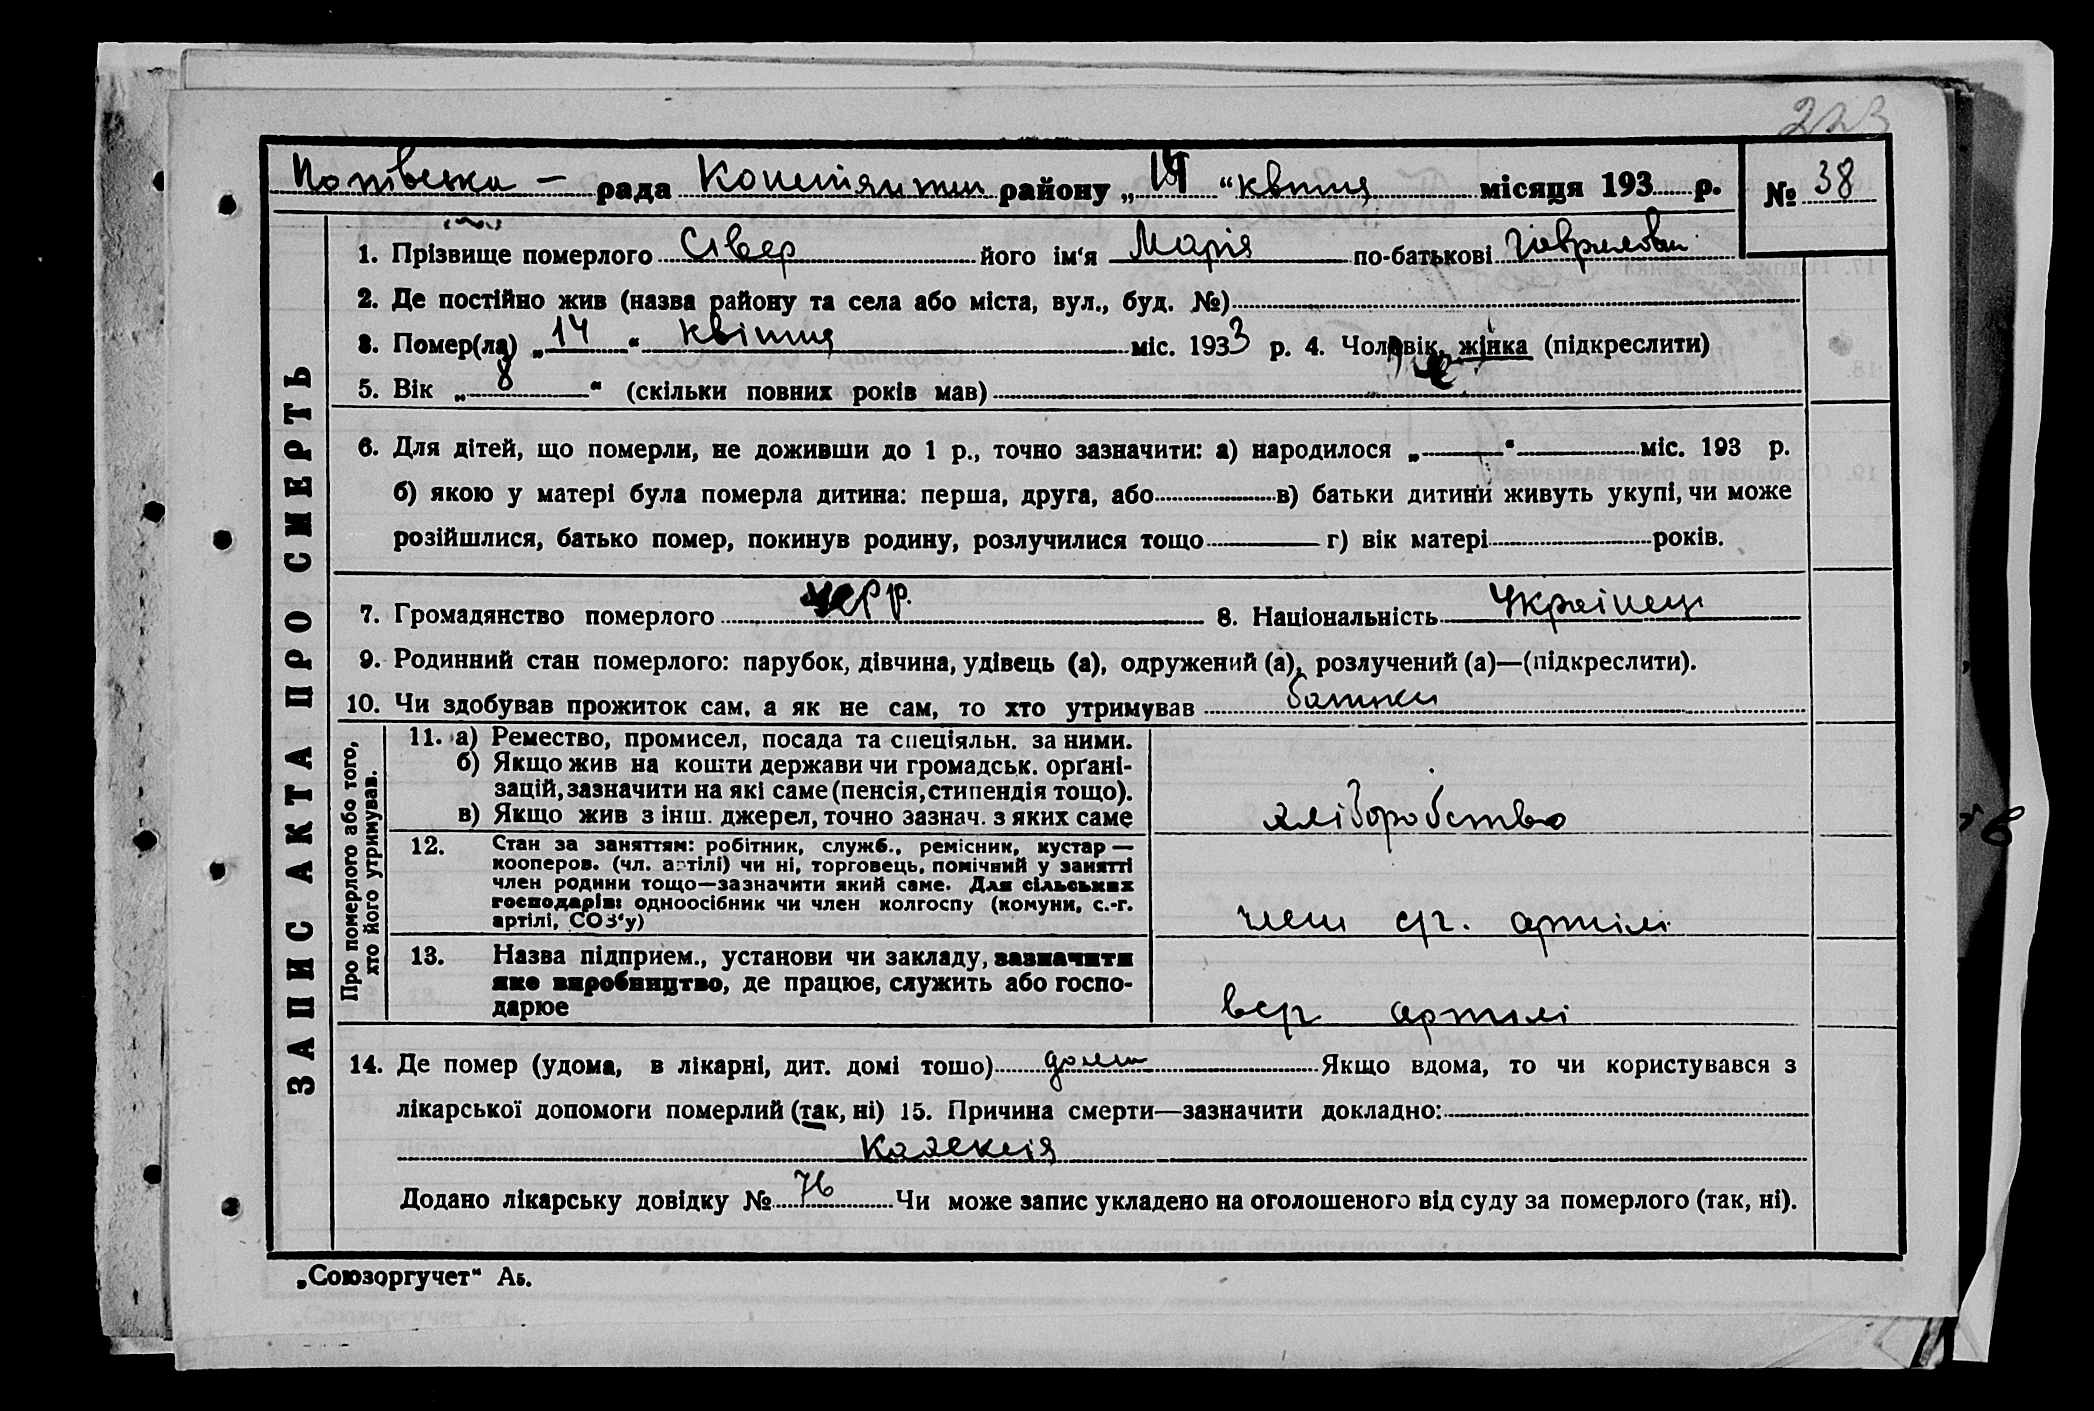 223
рада районі „ " квітня місяця 193 р. № 38
1. Прізвище померлого Сівер його ім'я Марія по-батькові
2. Де постійно жив (назва району та села або міста, вул., буд. №)
3. Помер(ла) „14" квітня міс. 1933 р. 4. Чоловік, жінка (підкреслити)
5. Вік „8" (скільки повних років мав)
6. Для дітей, що померли, не доживши до 1 р., точно зазначити: а) народилося „ " міс. 193 р.
б) якою у матері була померла дитина: перша, друга, або в) батьки дитини живуть укупі, чи може
розійшлися, батько помер, покинув родину, розлучилися тощо г) вік матері років.
7. Громадянство померлого 8. Національність Українець
9. Родинний стан померлого: парубок, дівчина, удівець (а), одружений (а), розлучений (а)—(підкреслити).
10. Чи здобував прожиток сам, а як не сам, то хто утримував батьки
ЗАПИС АКТА ПРО СМЕРТЬ
Про померлого або того,
хто його утримував.
11. а) Ремество, промисел, посада та спеціяльн. за ними.
б) Якщо жив на кошти держави чи громадськ. орґані-
зацій, зазначити на які саме (пенсія, стипендія тощо).
в) Якщо жив з інш. джерел, точно зазнач. з яких саме
хліборобство
12. Стан за заняттям: робітник, служб., ремісник, кустар—
кооперов. (чл. артілі) чи ні, торговець, помічний у занятті
член родини тощо—зазначити який саме. Для сільських
господарів: одноосібник чи член колгоспу (комуни, с.-г.
артілі, СОЗ'у)
член с/г. артілі
13. Назва підприєм., установи чи закладу, зазначити
яке виробництво, де працює, служить або госпо-
дарює
артілі
14. Де помер (удома, в лікарні, дит. домі тощо) дома Якщо вдома, то чи користувався з
лікарської допомоги померлий (так, ні) 15. Причина смерти—зазначити докладно:
Кахексія
Додано лікарську довідку № 76 Чи може запис укладено на оголошеного від суду за померлого (так, ні).
„Союзоргучет" Аб.